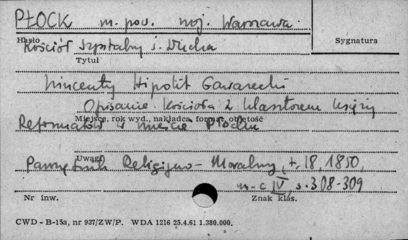 PŁOCK m. pow. woj. Warszawa
Hasło
Sygnatura
Kościół Szpitalny ś. Ducha
Tytuł
Wincenty Hipolit Gawarecki
Opisanie Kościoła z klasztorem księży
Miejsce, rok wyd., nakładca, format, objętość
Reformatów w mieście Płocku
Uwagi
Pamiętnik Religijno-Moralny, t. 18, 1850,
IV, s. 308-309
Nr inw.
Znak klas.
CWD - B-15a, nr 937/ZW/P. WDA 1216 25.4.61 1.380.000.